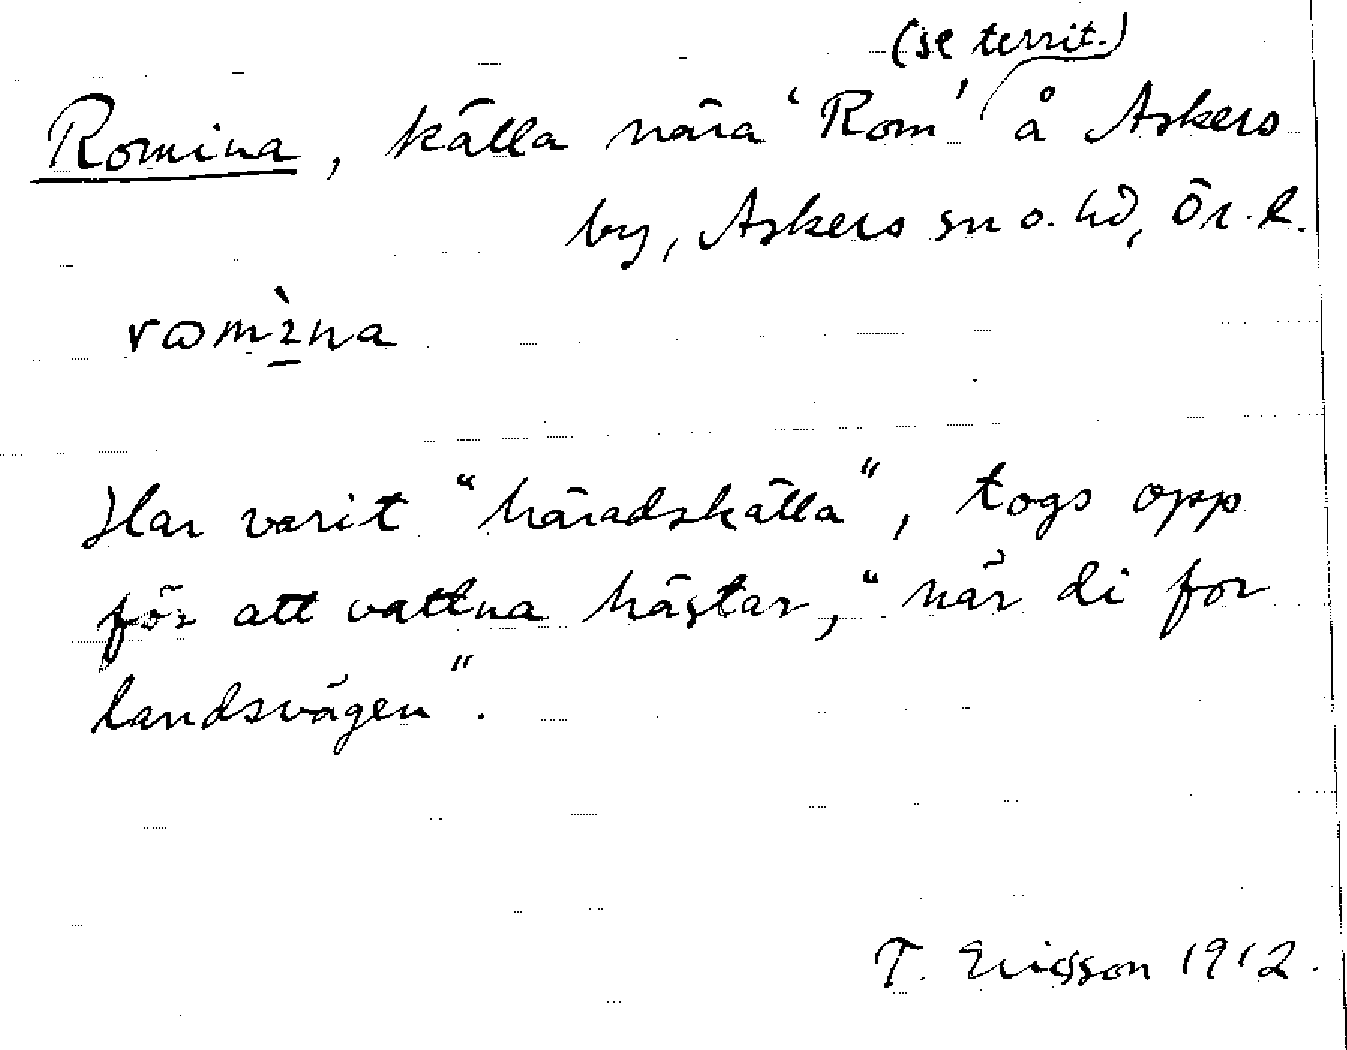 (se territ.)
Romina, källa nära 'Rom' å Askers
by, Askers sn o. hd, Ör. l.
romìna
Har varit "häradskälla", togs opp
för att vattna hästar, "när di for
landsvägen".
T. Ericsson 1912.